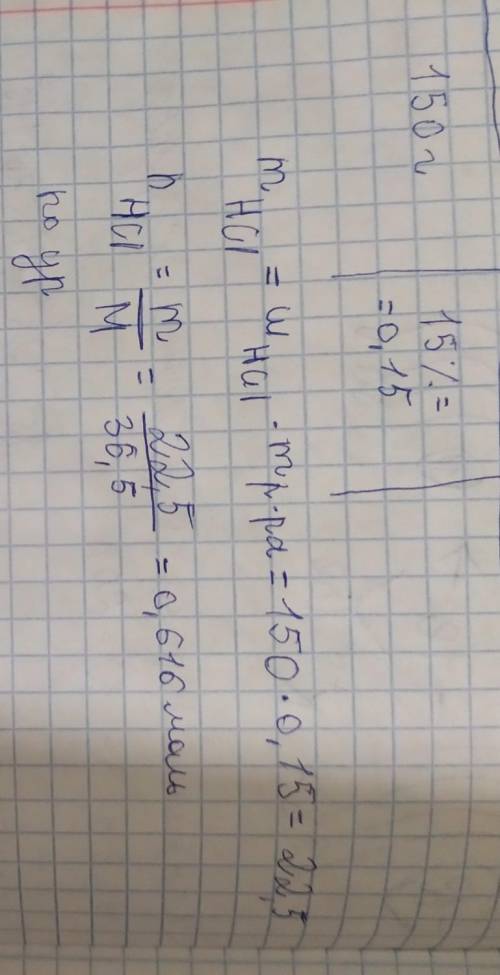 150 г
15% =
= 0,15
m HCl = ω HCl · m р-ра = 150 · 0,15 = 22,5
n HCl = m/M = 22,5/36,5 = 0,616 моль
по ур